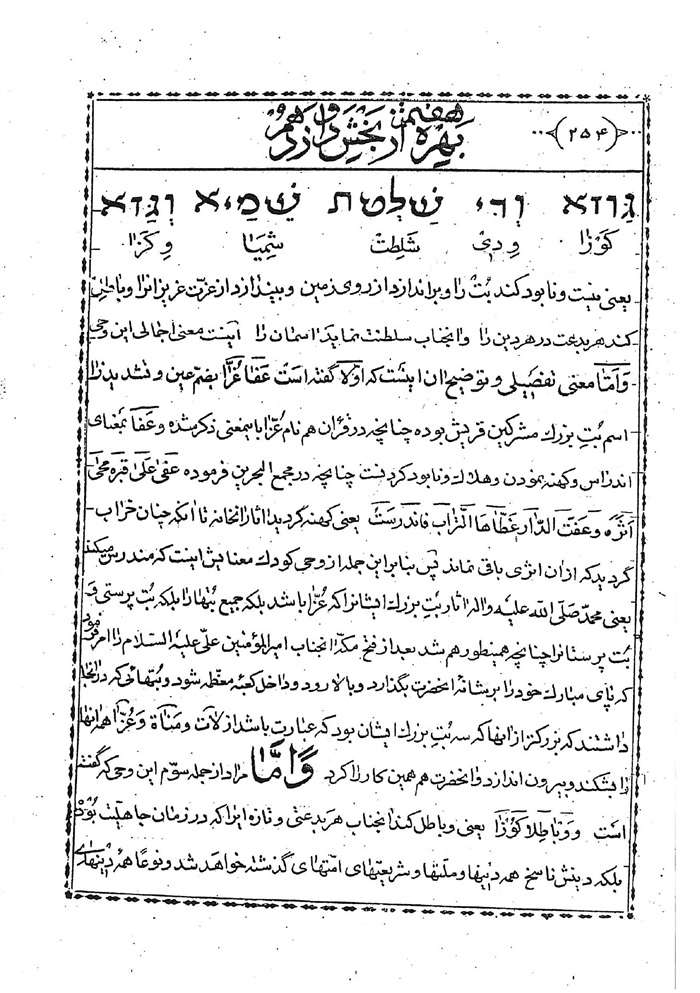 بهره هفتمین از بخش دوازدهم
(۲۵۴)
גוזא וְדִי שַׁלְטַת שְׁמַיָא וְגַזָא
کَوْزا وِ دِیٖ شَلِطَتْ شِمَیٰا وِ کَزا
یعنی نیست و نابود کند بُتْ را و براندازد از روی زمین و بیندازد از عزّت عزیزانرا و باطل
کند هر بدعت در هر دین را و آنجناب سلطنت نماید آسمان را اینست معنی اجمالی این وحی
وَاَمّا معنی تفصیلی و توضیح ان اینست که اوّلا گفته است عَفا عُزّا بضم عین و تشدید زا
اسم بُتِ بزرك مشرکین قریش بوده چنانچه در قرآن هم نام عُزّا باینمعنی ذکر شده و عَفا بمعنای
اندراس و کهنه نمودن و هلاك و نابود کردنست چنانچه در مجمع البحرین فرموده عَفیٰ عَلیٰ قَبره مَحیٰ
اَثَرَه وَ عَفَت الدّار غَطّاهَا التّراب فاندرسَتْ یعنی کهنه گردید اثار انخانه تا آنکه چنان خراب
گردید که از ان اثری باقی نماند پس بنابراین جمله از وحی کودك معنایش اینست که مندرس میکند
یعنی محمّد صَلّی الله علیه و اله اثار بت بزرك ایشانرا که عُزّا باشد بلکه جمیع بتها را بلکه بُت پرستی وَ
بُت پرستانرا چنانچه همینطور هم شد بعد از فتح مکّه آنجناب امیر المؤمنین علیّ علیه السلام را امر فرمود
که پای مبارك خود را بر شانهٔ آنحضرت بگذارد و بالا رود و داخل کعبهٔ معظّمه شود و بتهائی که در انجا
داشتند که بزرکتر از انها که سه بُتِ بزرك ایشان بود که عبارت باشد از لات و مَناة وَ عُزّا همه انها
را بشکند و بیرون اندازد و انحضرت هم همین کار را کرد وَ اَمّا مراد از جمله سوّم این وحی که گفته
است وَ وَباطِلا کَوْزا یعنی و باطل کند آنجناب هر بدعتی و تازه ایرا که در زمان جاهلیّت بُوْد
بلکه دینش ناسخ همه دینها و ملّتها و شریعتهای امّتهای گذشته خواهد شد و نوعا همهٔ دینهای